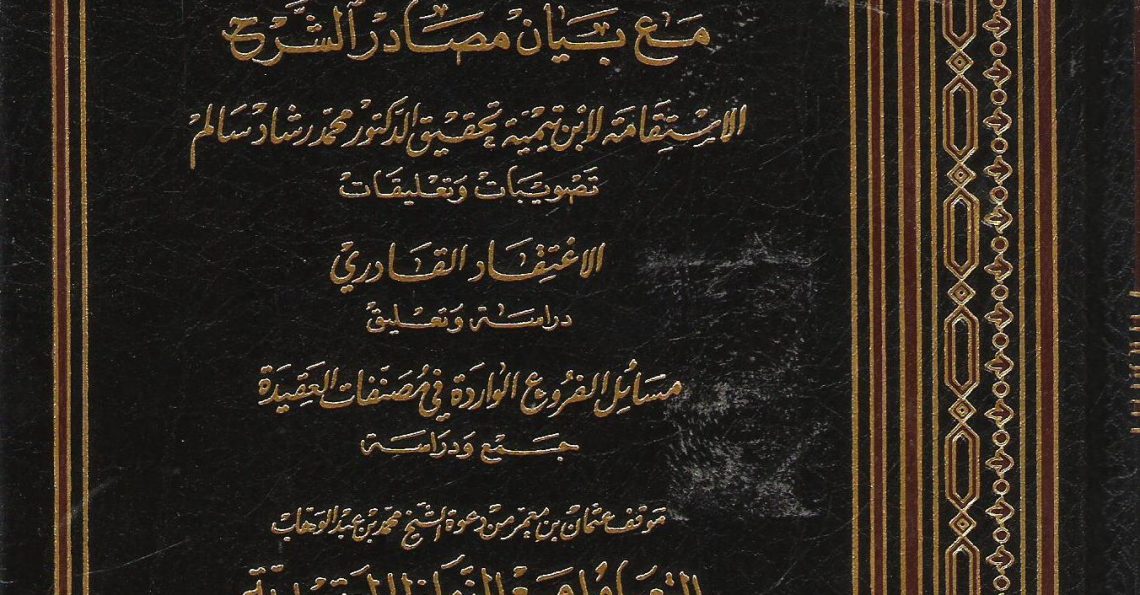 مَع بَيَان مَصَادر الشَّرْح
الاسْتِقَامَة لابْن تيْميَة تحقيق الدكتور محمد رشاد سَالم
تَصْويبَات وَتَعْليقَات
الاعْتِقَاد القَادري
دراسَة وَتعْليق
مَسَائل الفرُوع الوَاردَة في مُصَنّفات العَقيدَة
جَمْع وَدرَاسَة
مَوقف عثمان بن معمر من دعوة الشيخ محمد بن عبد الوهاب